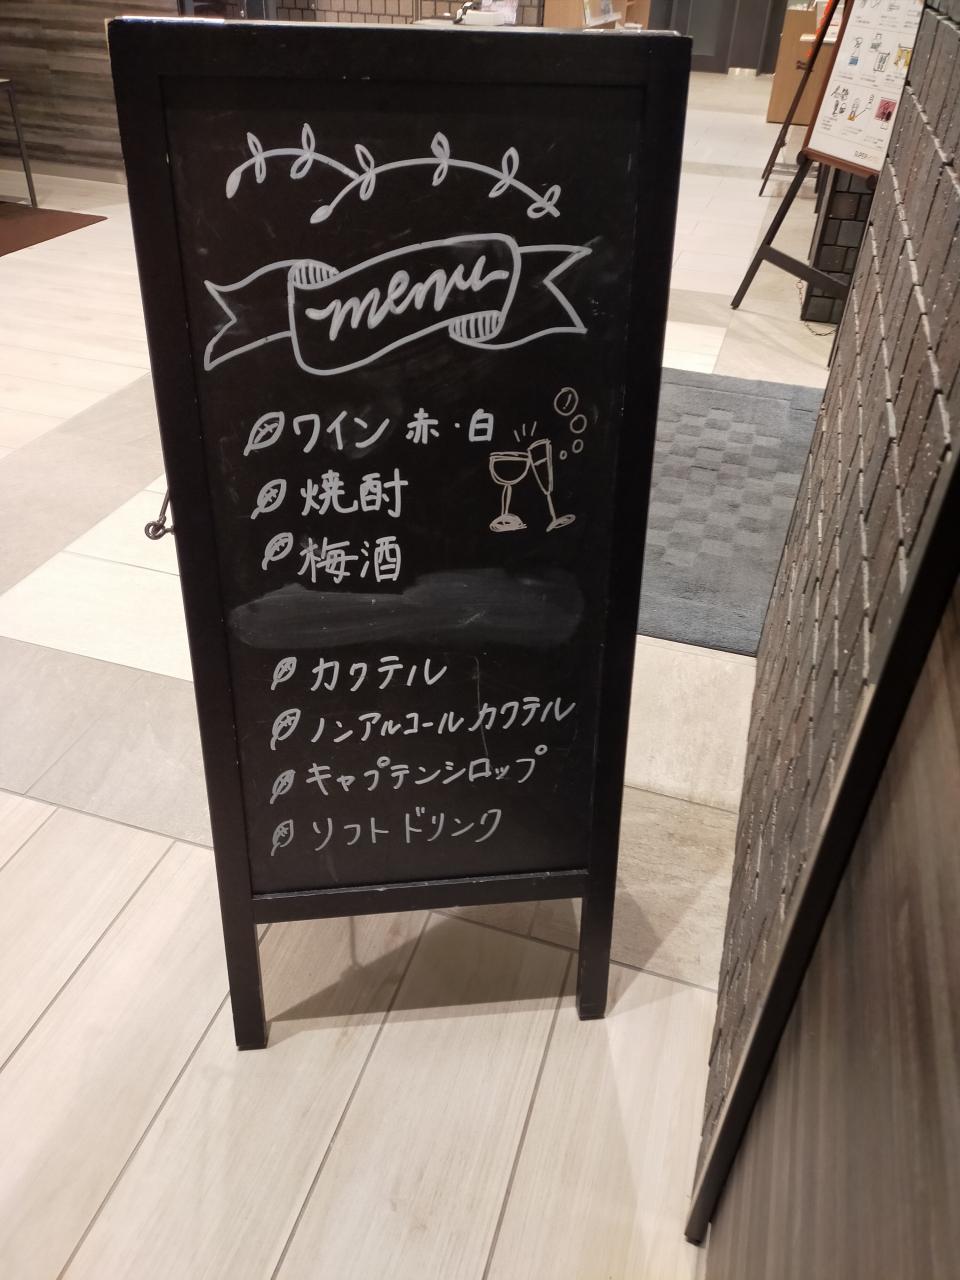 menu
ワイン 赤・白
焼酎
梅酒
カクテル
ノンアルコールカクテル
キャプテンシロップ
ソフトドリンク
SUPER